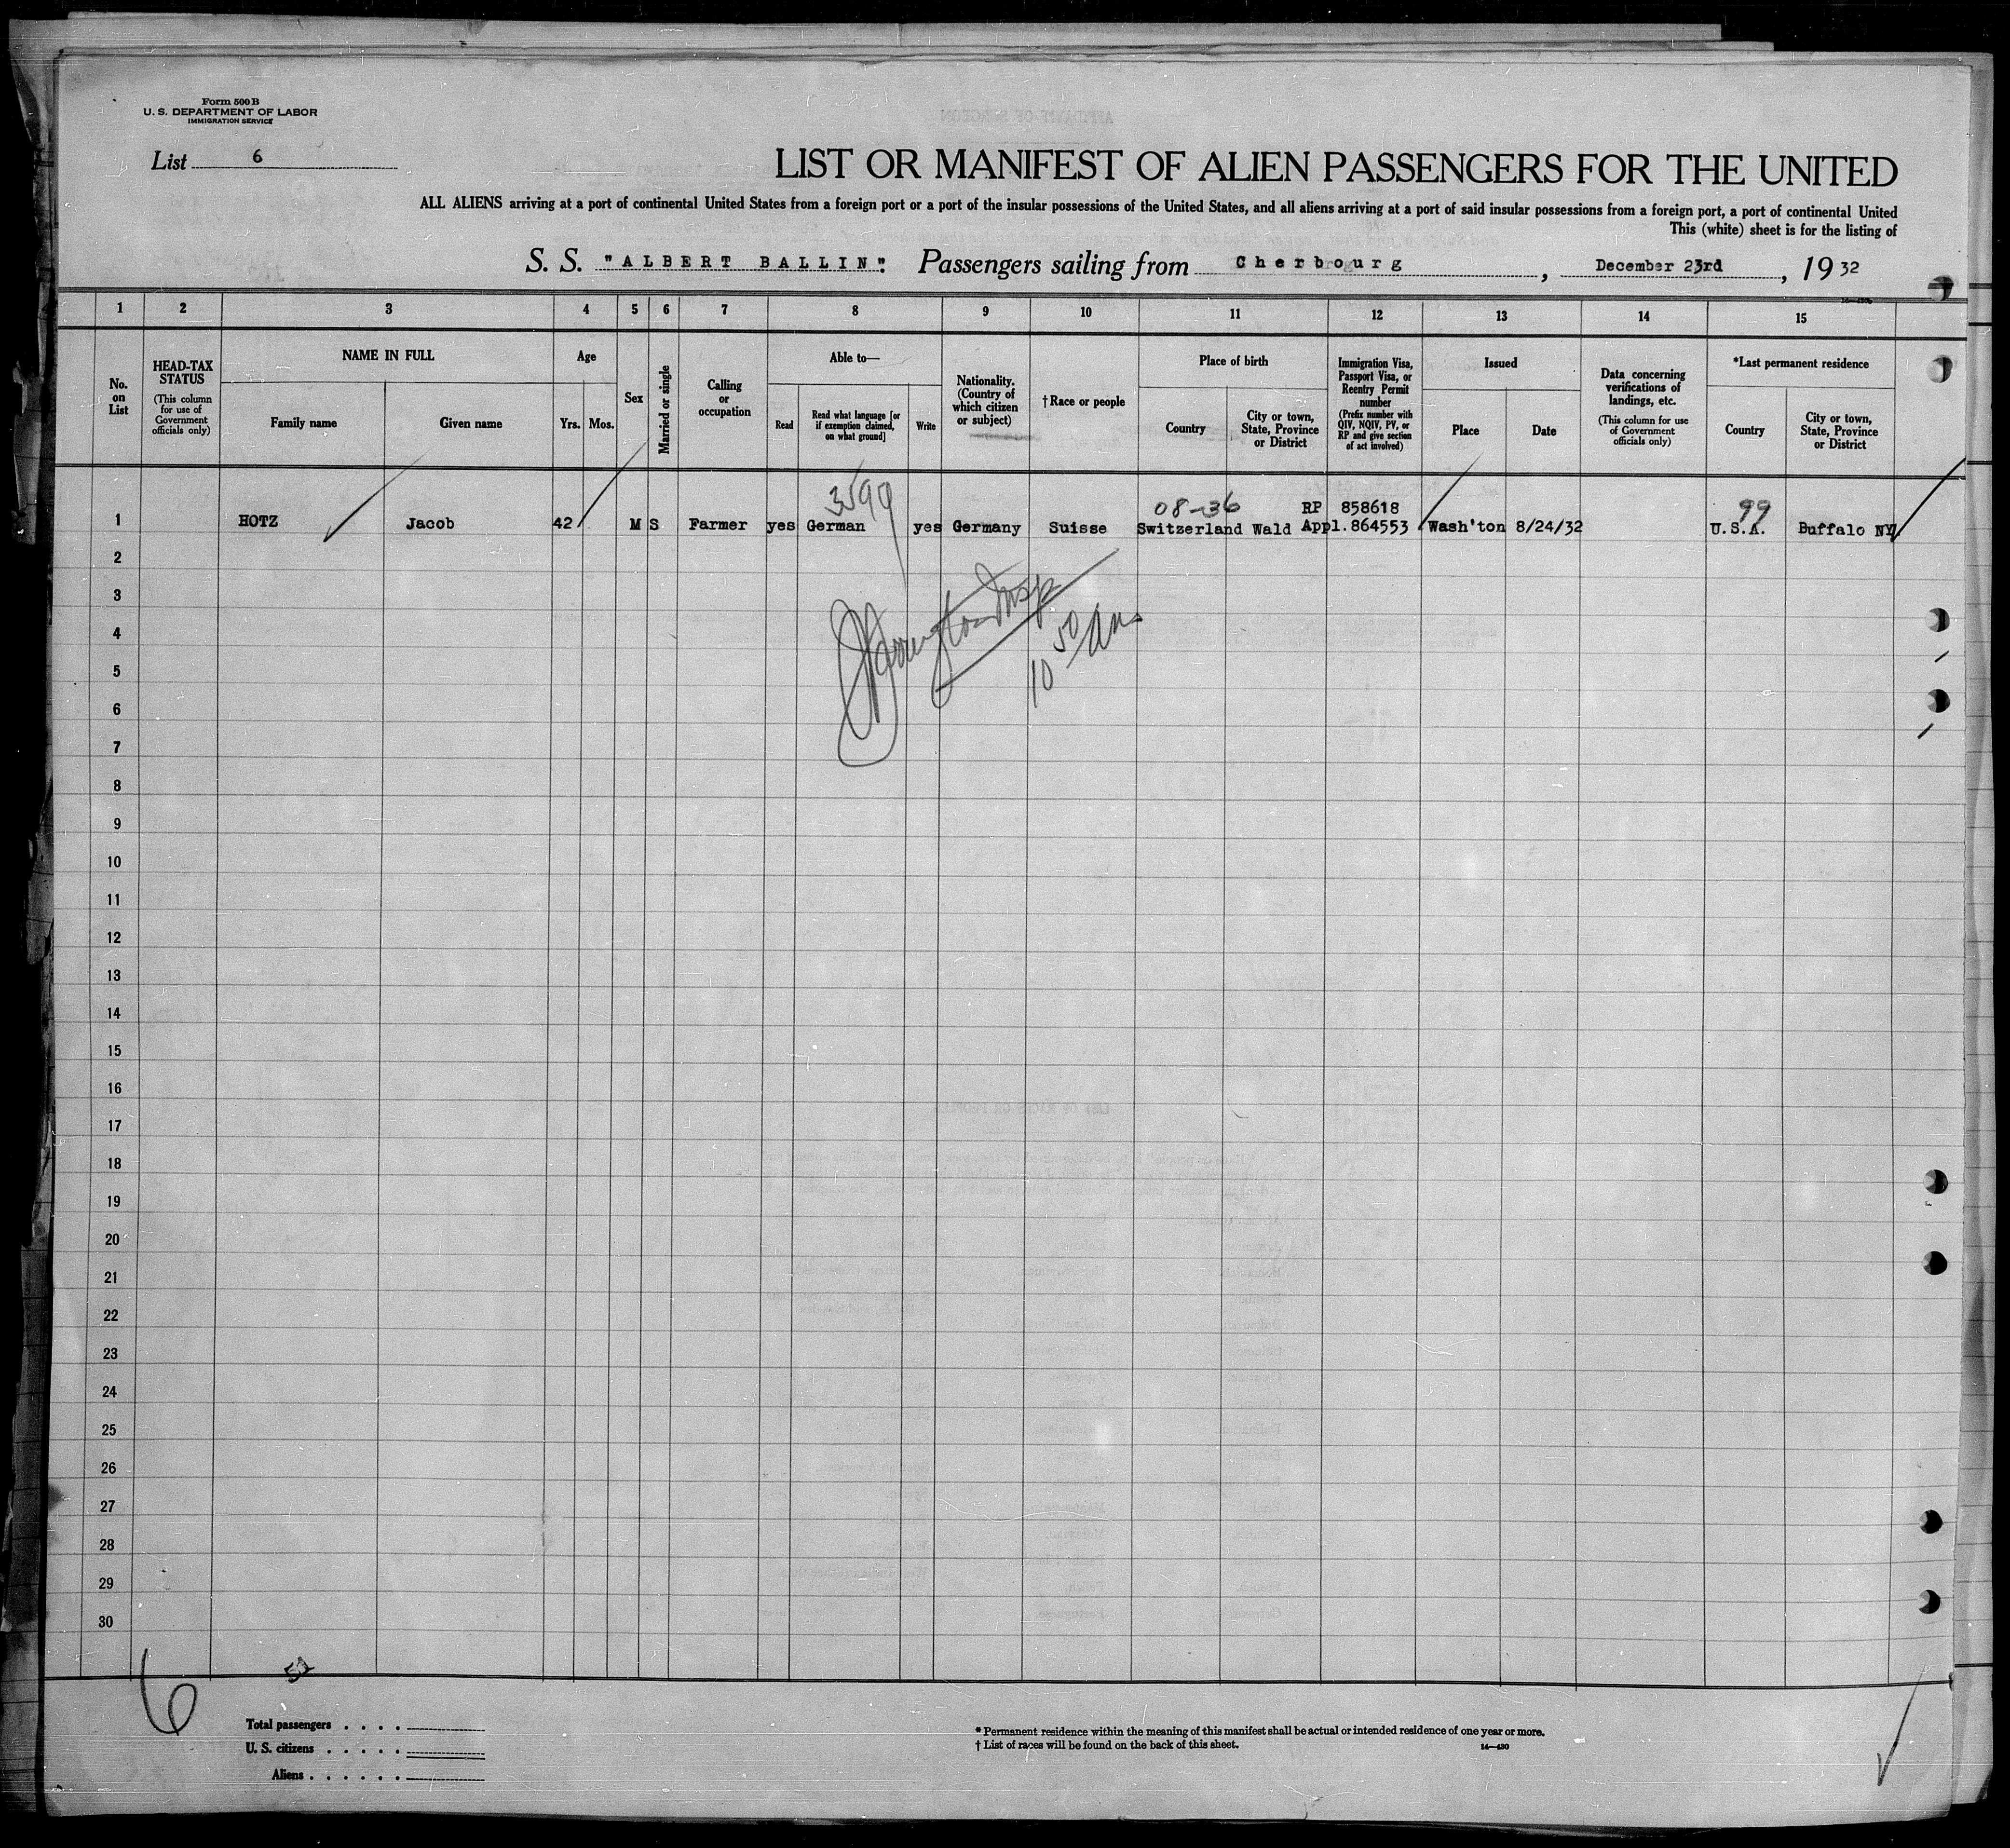 Form 500 B
U. S. DEPARTMENT OF LABOR
IMMIGRATION SERVICE
List 6
LIST OR MANIFEST OF ALIEN PASSENGERS FOR THE UNITED
ALL ALIENS arriving at a port of continental United States from a foreign port or a port of the insular possessions of the United States, and all aliens arriving at a port of said insular possessions from a foreign port, a port of continental United
This (white) sheet is for the listing of
S. S. "ALBERT BALLIN". Passengers sailing from Cherbourg, December 23rd, 19 32
1 2 3 4 5 6 7 8 9 10 11 12 13 14 15
No. on List
HEAD-TAX STATUS
(This column for use of Government officials only)
NAME IN FULL
Family name
Given name
Age
Yrs. Mos.
Sex
Married or single
Calling or occupation
Able to—
Read
Read what language [or if exemption claimed, on what ground]
Write
Nationality. (Country of which citizen or subject)
† Race or people
Place of birth
Country
City or town, State, Province or District
Immigration Visa, Passport Visa, or Reentry Permit number
(Prefix number with QIV, NQIV, PV, or RP and give section of act involved)
Issued
Place
Date
Data concerning verifications of landings, etc.
(This column for use of Government officials only)
*Last permanent residence
Country
City or town, State, Province or District
3599
08-36 RP 858618 99
1 HOTZ Jacob 42 M S Farmer yes German yes Germany Suisse Switzerland Wald Appl. 864553 Wash'ton 8/24/32 U.S.A. Buffalo NY.
2
3
4
10 50
5
6
7
8
9
10
11
12
13
14
15
16
17
18
19
20
21
22
23
24
25
26
27
28
29
30
6
Total passengers . . . .
U. S. citizens . . . . .
Aliens . . . . . .
* Permanent residence within the meaning of this manifest shall be actual or intended residence of one year or more.
† List of races will be found on the back of this sheet.
14—430